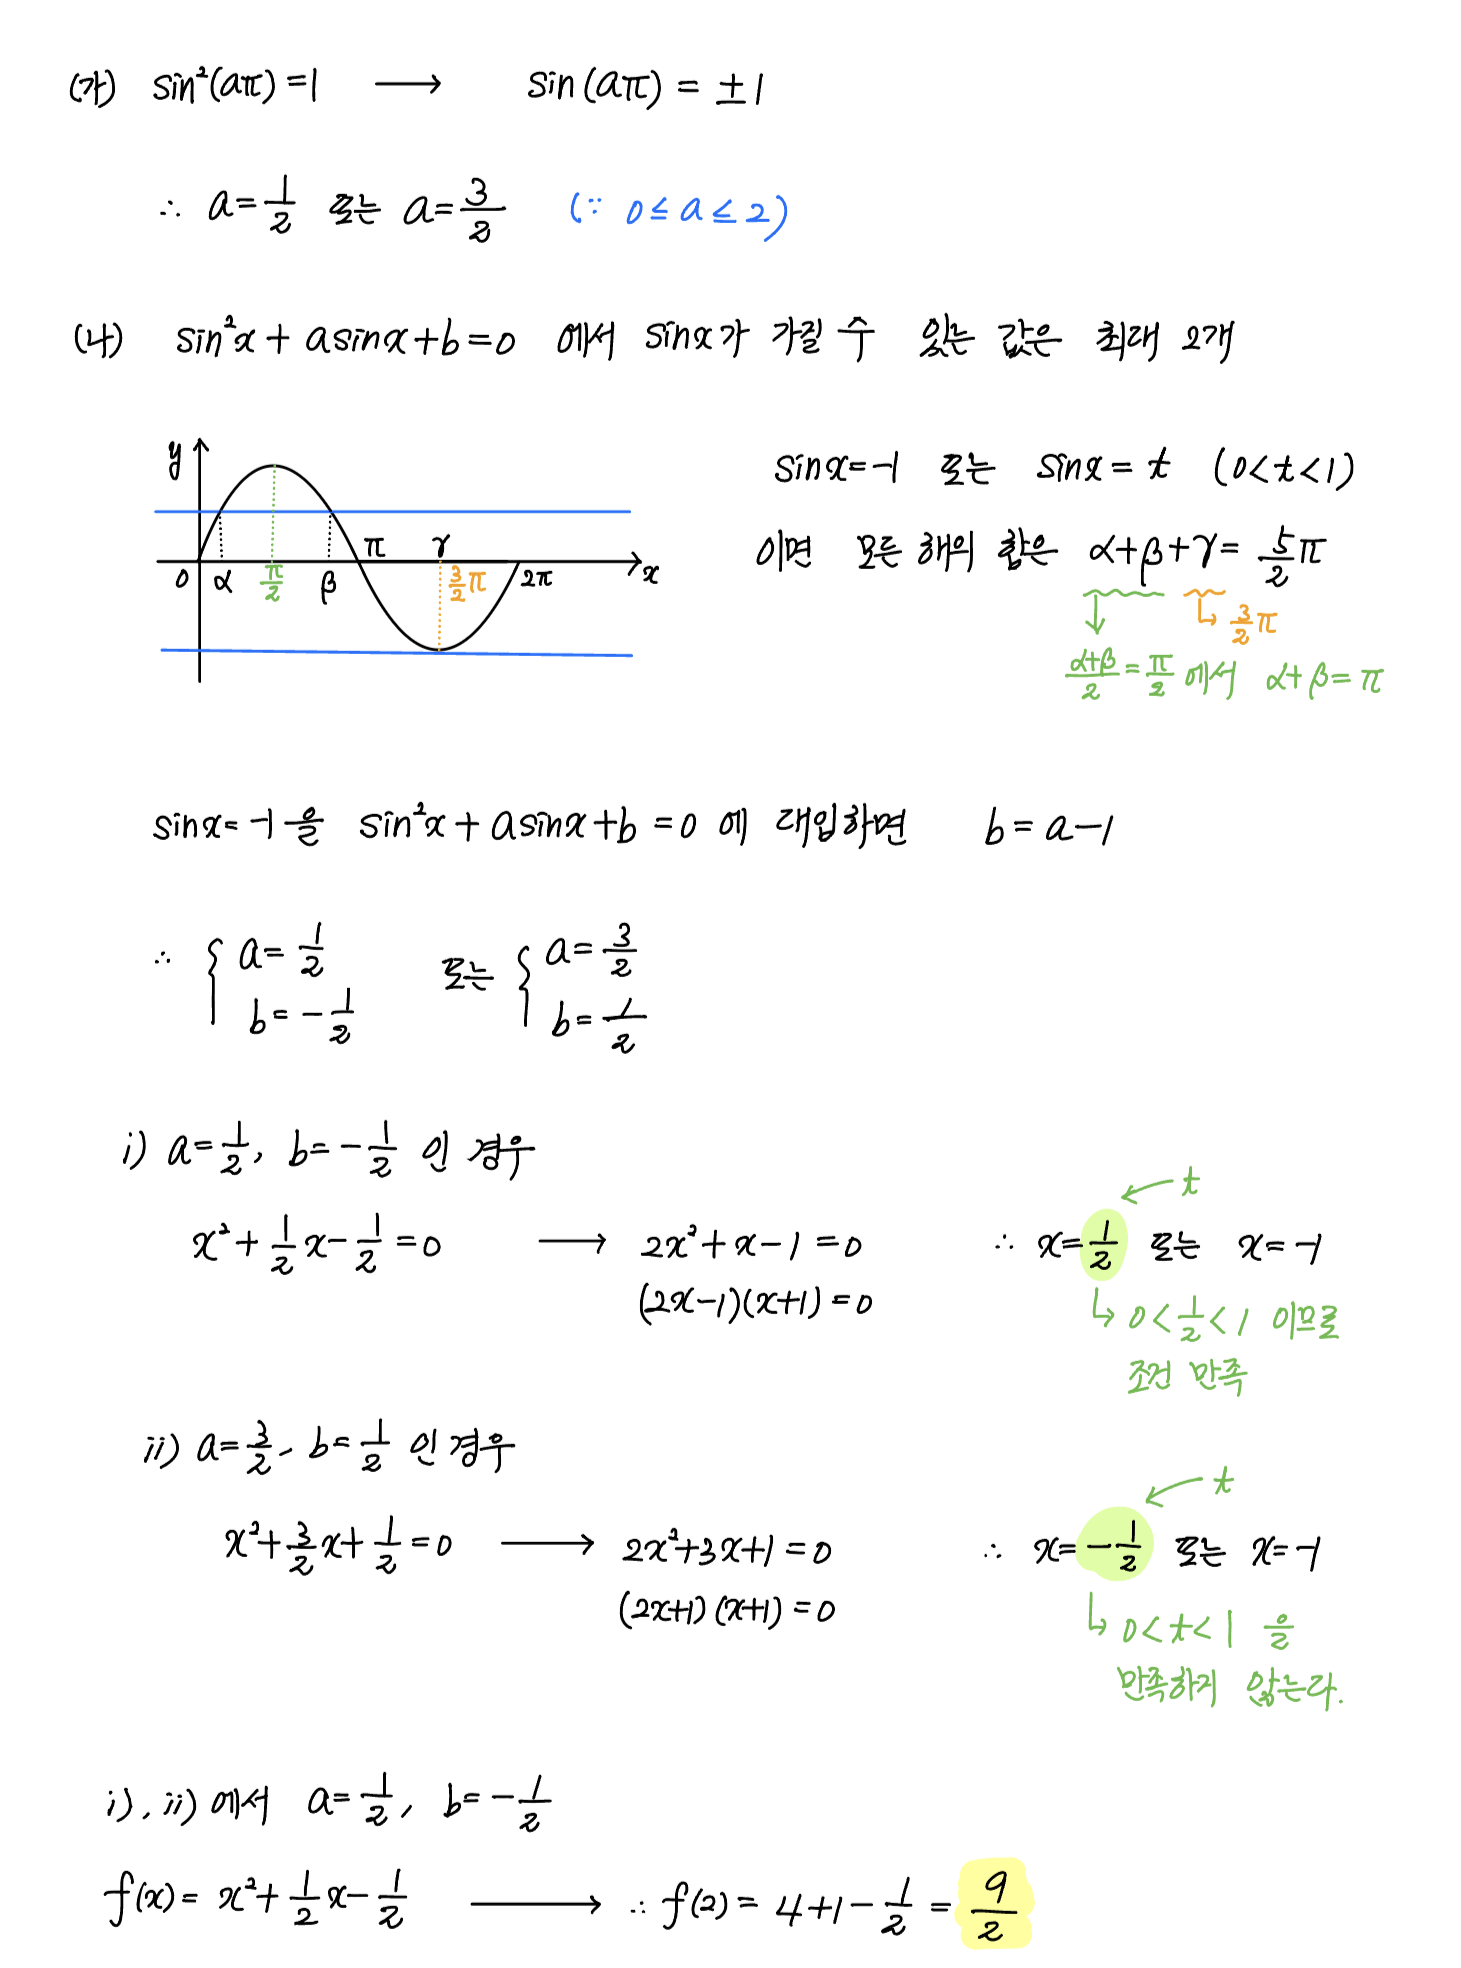 (가) sin²(aπ)=1 → sin(aπ) = ±1
∴ a=1/2 또는 a=3/2 (∵ 0≤a≤2)
(나) sin²x + asinx+b=0 에서 sinx가 가질 수 있는 값은 최대 2개
y
0 α π/2 β π γ 3/2π 2π x
sinx=-1 또는 sinx = t (0<t<1)
이면 모든 해의 합은 α+β+γ= 5/2π
↳ 3/2π
α+β/2=π/2 에서 α+β=π
sinx=-1을 sin²x + asinx+b=0 에 대입하면 b=a-1
∴ { a=1/2 또는 { a=3/2
b=-1/2 b=1/2
i) a=1/2, b=-1/2 인 경우
x²+1/2x-1/2=0 → 2x²+x-1=0 ∴ x=1/2 또는 x=-1
← t
(2x-1)(x+1)=0
↳ 0<1/2<1 이므로
조건 만족
ii) a=3/2, b=1/2 인 경우
x²+3/2x+1/2=0 → 2x²+3x+1=0 ∴ x=-1/2 또는 x=-1
← t
(2x+1)(x+1)=0
↳ 0<t<1 을
만족하지 않는다.
i), ii) 에서 a=1/2, b=-1/2
f(x)= x²+1/2x-1/2 → ∴ f(2)= 4+1-1/2 = 9/2